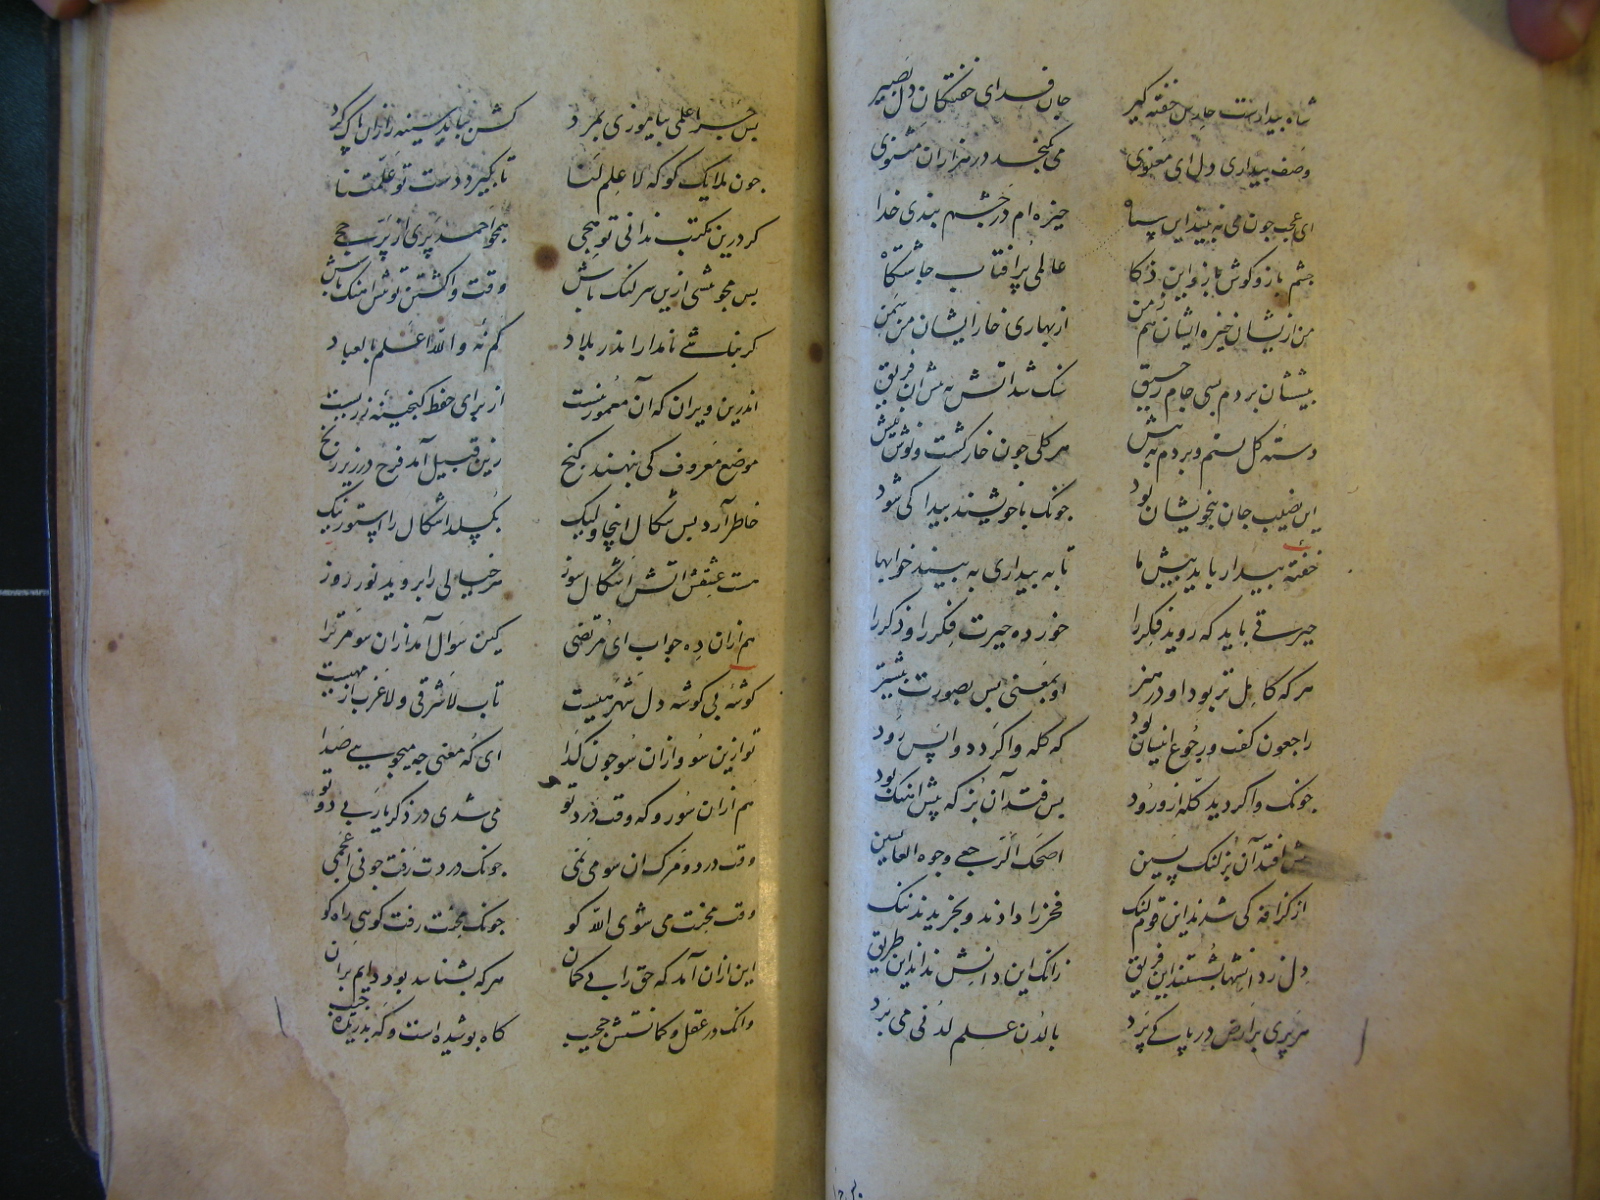 شاه بیدارست حارس خفته گیر جان فدای خفتگان دل بصیر
وصف بیداری دل ای معنوی می نگنجد در هزاران مثنوی
ای عجب چون می نه بیند این سپاه خیره ام در چشم بندی خدا
چشم باز و گوش باز و این ذکا
عالمی پر آفتاب چاشتگاه
من ازیشان خیره ایشان هم ز من از بهاری خار ایشان من سمن
پیششان بردم بسی جام رحیق سنگ شد آتش به پیش آن فریق
دسته گل بستم و بردم به پیش هر گلی چون خار گشت و نوش نیش
این نصیب جان بیخویشان بود چونک با خویشند پیدا کی شود
خفته بیدار باید پیش ما تا به بیداری به بیند خوابها
حیرتی باید که روبد فکر را خورده حیرت فکر را و ذکر را
هر که کامل تر بود او در هنر او بمعنی پس بصورت پیشتر
راجعون گفت و رجوع اینسان بود که گله واگردد و واپس رود
چونک واگردید گله از ورود پس فتد آن بز که پیش آهنگ بود
پیش افتد آن بز لنگ پسین اضحک الرجعی وجوه العابسین
از گزافه کی شدند این قوم لنگ فخر را دادند و بخریدند ننگ
دل ز دانشها بشستند این فریق زانک این دانش نداند این طریق
هر پری بر عرض دریا کی پرد با لدن علم لدنی می برد
پس چرا علمی بیاموزی بمرد کش بباید سینه را زان پاک کرد
چون ملایک گو که لا علم لنا تا بگیرد دست تو علمتنا
گر درین مکتب ندانی تو هجی همچو احمد پری از حجی
پس مجو پیشی ازین سر لنگ باش وقت واگشتن تو پیش آهنگ باش
گر نباشی نامدار اندر بلاد کم نه والله اعلم بالعباد
اندرین ویران که آن معمور نیست از برای حفظ گنجینه زریست
موضع معروف کی بنهند گنج زین قبیل آمد فرج در زیر رنج
خاطر آرد بس شکال اینجا ولیک بگسلد اشکال را استور نیک
هست عشقش آتش اشکال سوز هر خیالی را بروبد نور روز
هم ازان ده جواب ای مرتضی کین سوال آمد ازان سو مر ترا
گوشه بی گوشه دل شهرهیست تاب لا شرقی و لا غرب از مهیست
تو ازین سو و ازان سو چون گدا ای که معنی چه میجویی صدا
هم ازان سو رو که وقت درد تو می شدی در ذکر یاربی دو تو
وقت درد و مرگ آن سو می نمی چونک دردت رفت چونی اعجمی
وقت محنت می شوی الله گو چونک محنت رفت گویی راه کو
این ازان آمد که حق را بی گمان هر که بشناسد بود دایم بران
وانک در عقل و گمانستش حجیب گاه پوشیده است و گه بدریده جیب